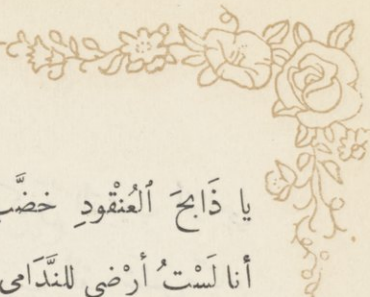 يا ذَابحَ ٱلعُنْقودِ خضَّب
أنا لَسْتُ أرْضى للنَّدَامى